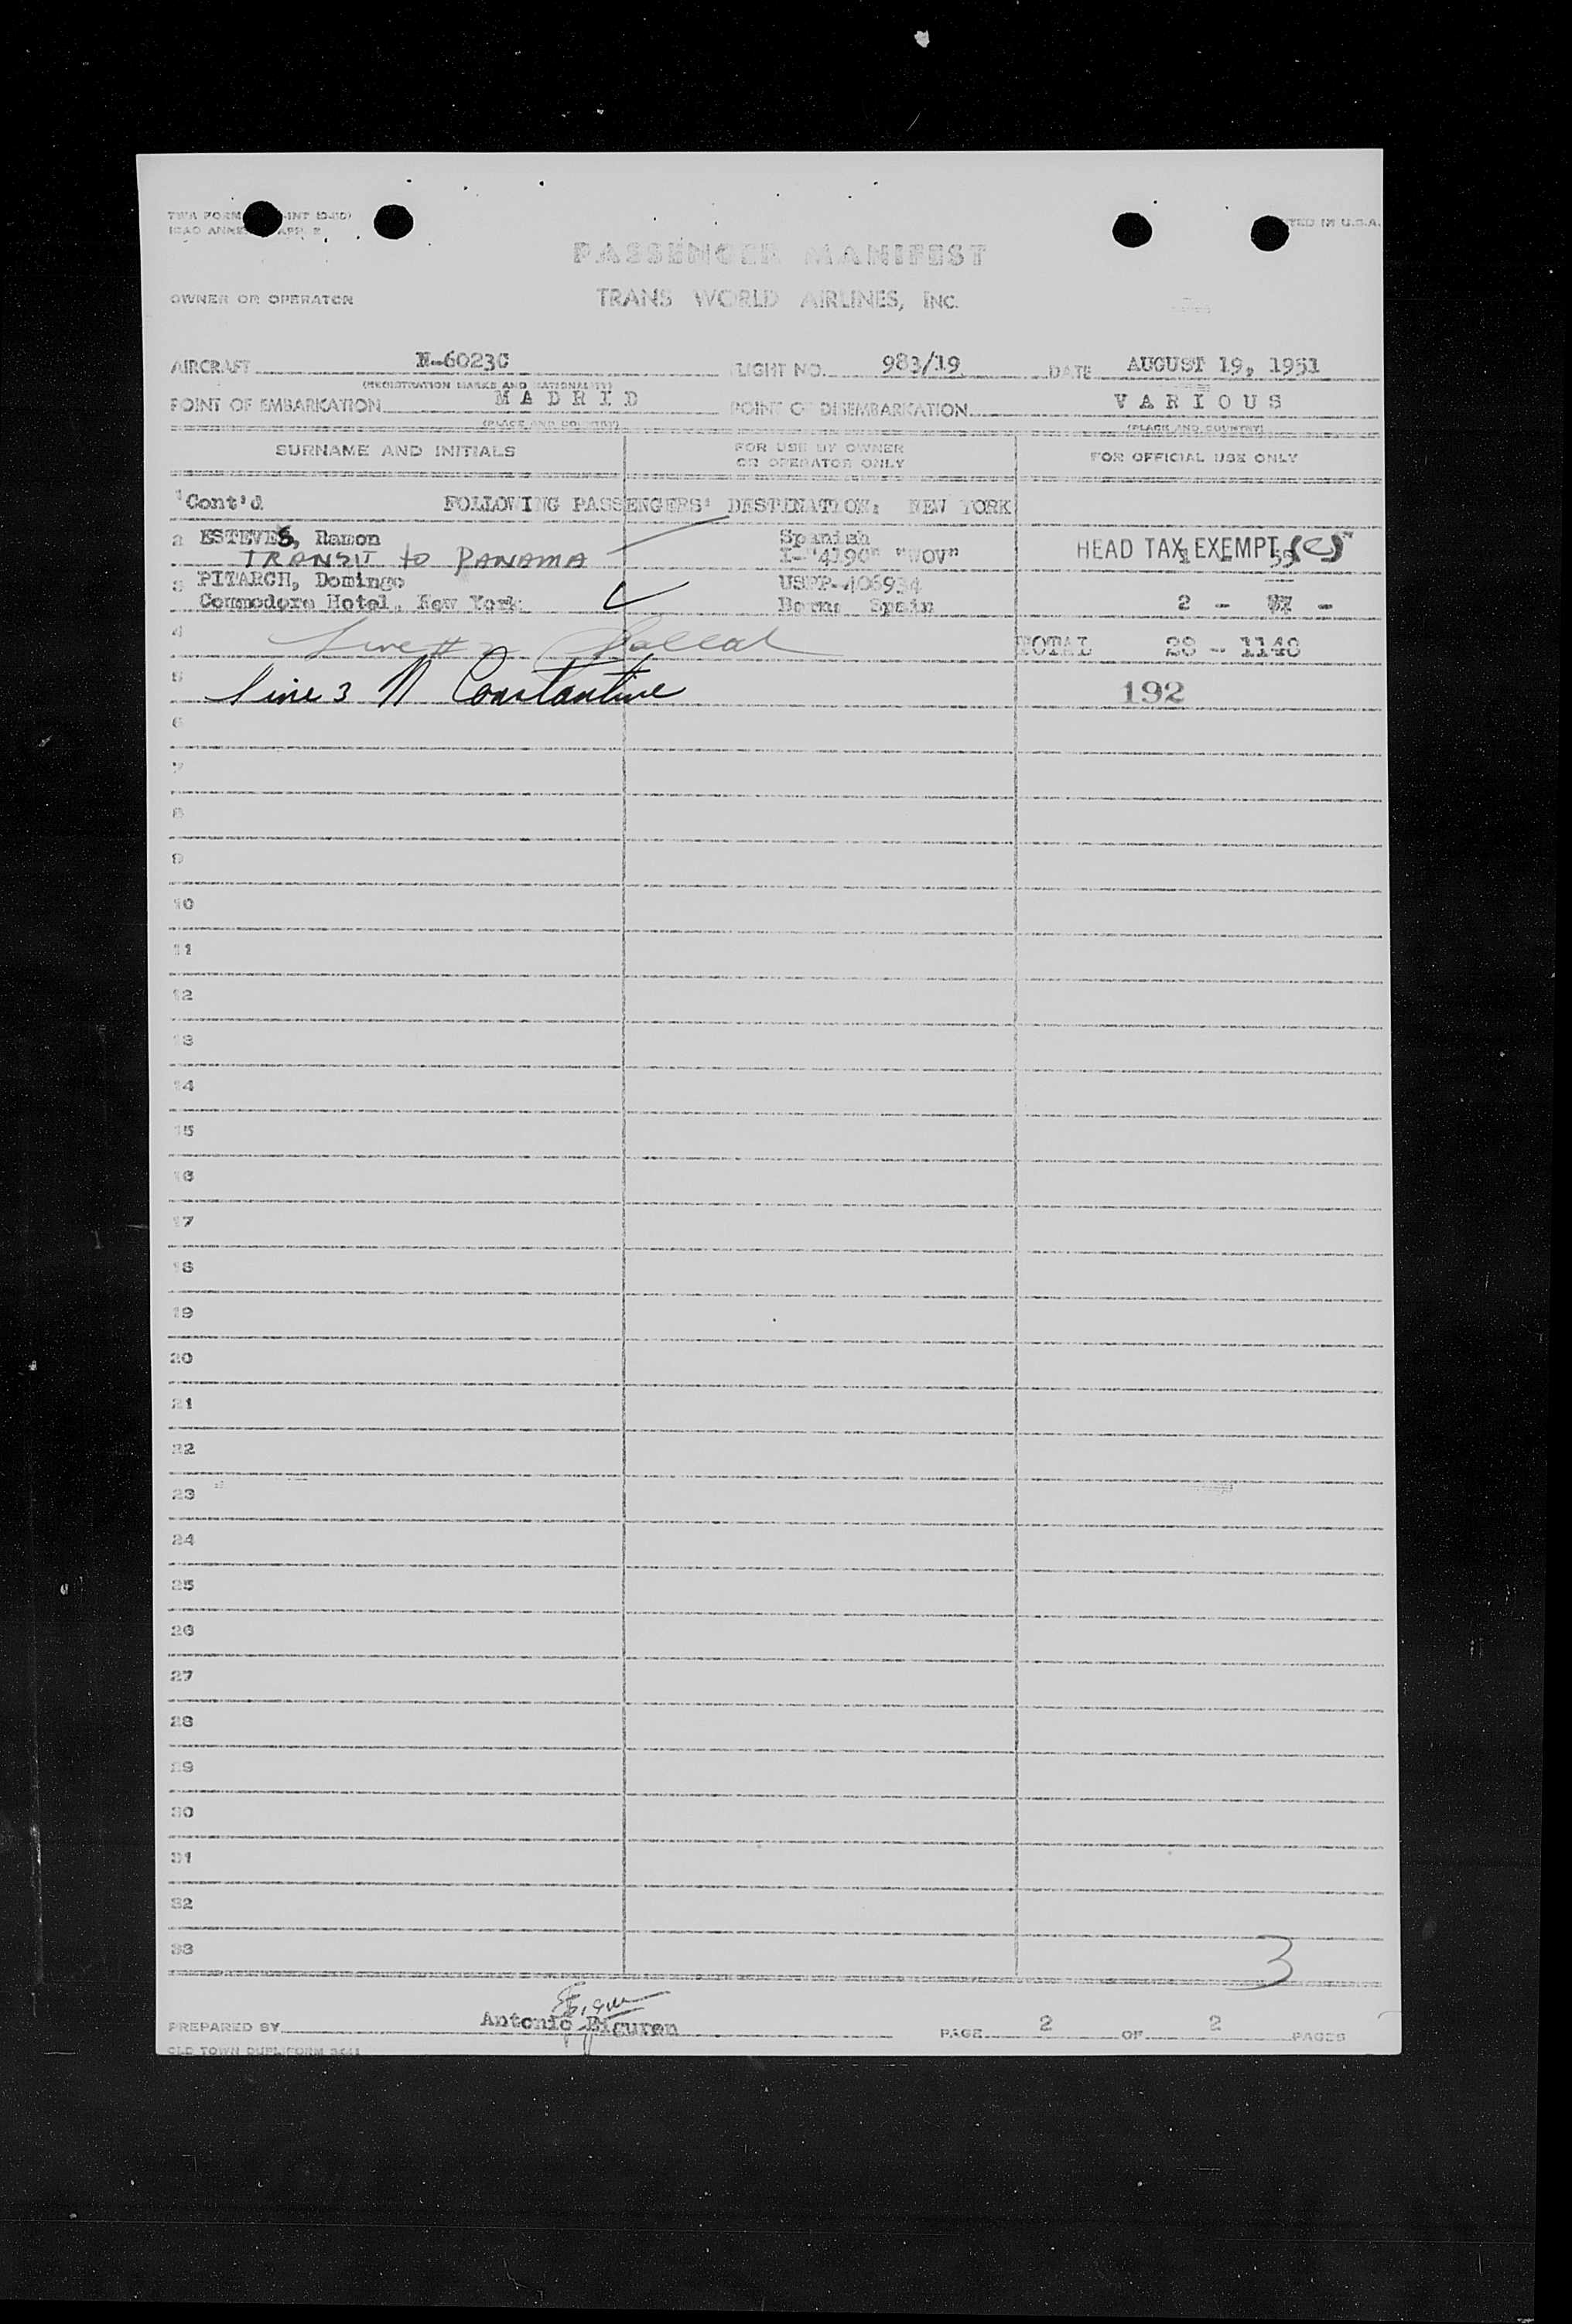 TWA FORM INT
ICAO ANNEX APP. 2 TED IN U.S.A.
PASSENGER MANIFEST
OWNER OR OPERATOR TRANS WORLD AIRLINES, INC.
AIRCRAFT N-6023C FLIGHT NO. 983/19 DATE AUGUST 19, 1951
(REGISTRATION MARKS AND NATIONALITY)
POINT OF EMBARKATION MADRID POINT OF DISEMBARKATION VARIOUS
(PLACE AND COUNTRY) (PLACE AND COUNTRY)
SURNAME AND INITIALS FOR USE BY OWNER OR OPERATOR ONLY FOR OFFICIAL USE ONLY
1 Cont'd FOLLOWING PASSENGERS' DESTINATION: NEW YORK
2 ESTEVES, Ramon Spanish HEAD TAX EXEMPT
TRANSIT to PANAMA I-"4190" "WOV"
3 PITARCH, Domingo USPP-406934
Commodore Hotel, New York Born: Spain 2 -
4 Line # 2 TOTAL 29 - 1148
5 line 3 N Constantine 192
6
7
8
9
10
11
12
13
14
15
16
17
18
19
20
21
22
23
24
25
26
27
28
29
30
31
32
33
3
PREPARED BY Antonio Eiguren PAGE 2 OF 2 PAGES
OLD TOWN DUPLIFORM